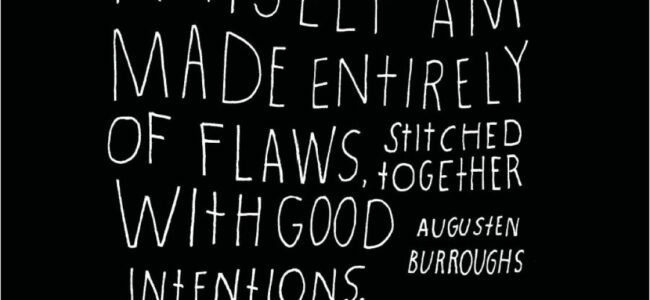 MYSELF AM
MADE ENTIRELY
OF FLAWS, STITCHED
TOGETHER
WITH GOOD
INTENTIONS.
AUGUSTEN
BURROUGHS